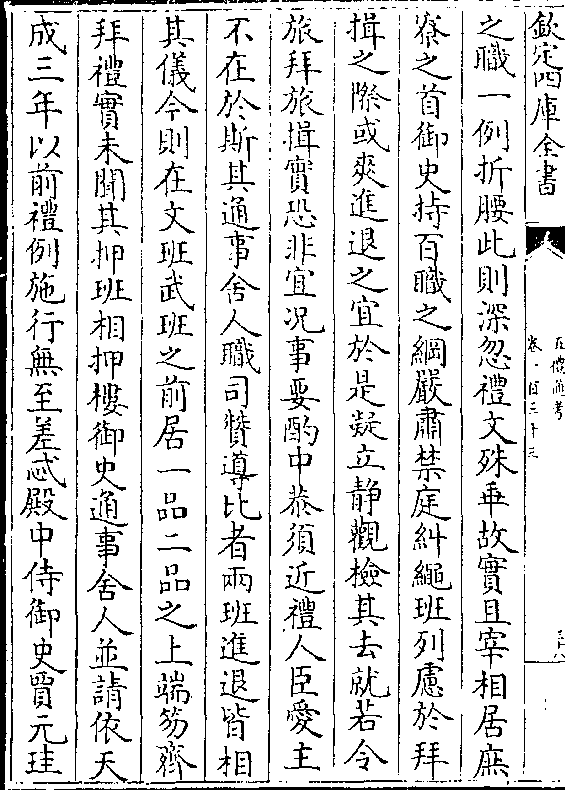 欽定四庫全書
五禮通考
卷一百三十三
之職一例折腰此則深忽禮文殊乖故實且宰相居庶
寮之首御史持百職之綱嚴肅禁庭糾繩班列慮於拜
揖之際或爽進退之宜於是凝立静觀檢其去就若令
旅拜旅揖實恐非宜况事要酌中恭須近禮人臣愛主
不在於斯其通事舍人職司贊導比者兩班進退皆相
其儀今則在文班武班之前居一品二品之上端笏齊
拜禮實未聞其押班相押樓御史通事舍人並請依天
成三年以前禮例施行無至差忒殿中侍御史賈元珪